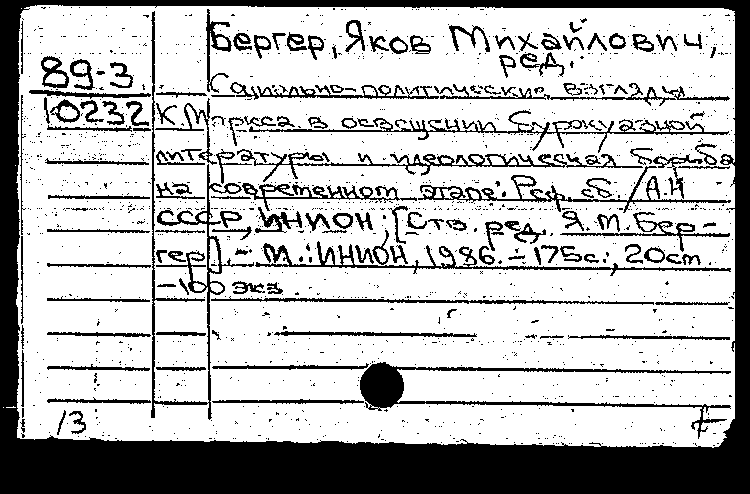 Бергер, Яков Михайлович,
ред.
89-3
10232
Социально-политические взгляды
К. Маркса в освещении буржуазной
литературы и идеологическая борьба
на современном этапе: Реф. сб. / АН
СССР, ИНИОН; [Отв. ред. Я.М. Бер-
гер]. - М.: ИНИОН, 1986. - 175с.; 20см
-100 экз.
13